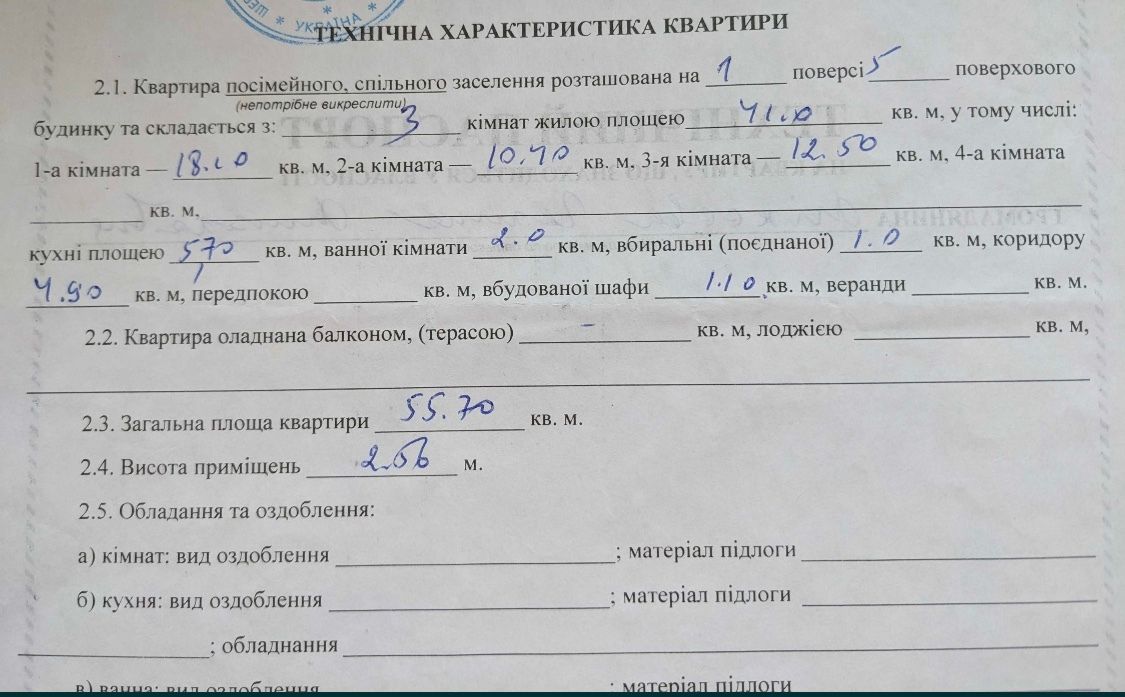 УКРАЇНА
ТЕХНІЧНА ХАРАКТЕРИСТИКА КВАРТИРИ
2.1. Квартира посімейного, спільного заселення розташована на 1 поверсі 5 поверхового
(непотрібне викреслити)
будинку та складається з: 3 кімнат жилою площею 41.0 кв. м, у тому числі:
1-а кімната — 18.10 кв. м, 2-а кімната — 10.40 кв. м, 3-я кімната — 12.50 кв. м, 4-а кімната
кв. м,
кухні площею 5,70 кв. м, ванної кімнати 2.0 кв. м, вбиральні (поєднаної) 1.0 кв. м, коридору
4.90 кв. м, передпокою кв. м, вбудованої шафи 1.10 кв. м, веранди кв. м.
2.2. Квартира оладнана балконом, (терасою) – кв. м, лоджією кв. м,
2.3. Загальна площа квартири 55.70 кв. м.
2.4. Висота приміщень 2.56 м.
2.5. Обладання та оздоблення:
а) кімнат: вид оздоблення ; матеріал підлоги
б) кухня: вид оздоблення ; матеріал підлоги
; обладнання
в) ванна: вид оздоблення ; матеріал підлоги